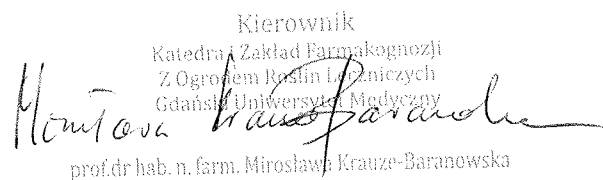 Kierownik
Katedra i Zakład Farmakognozji
Z Ogrodem Roślin Leczniczych
Gdański Uniwersytet Medyczny
Mirosława Krauze-Baranowska
prof.dr hab. n. farm. Mirosława Krauze-Baranowska